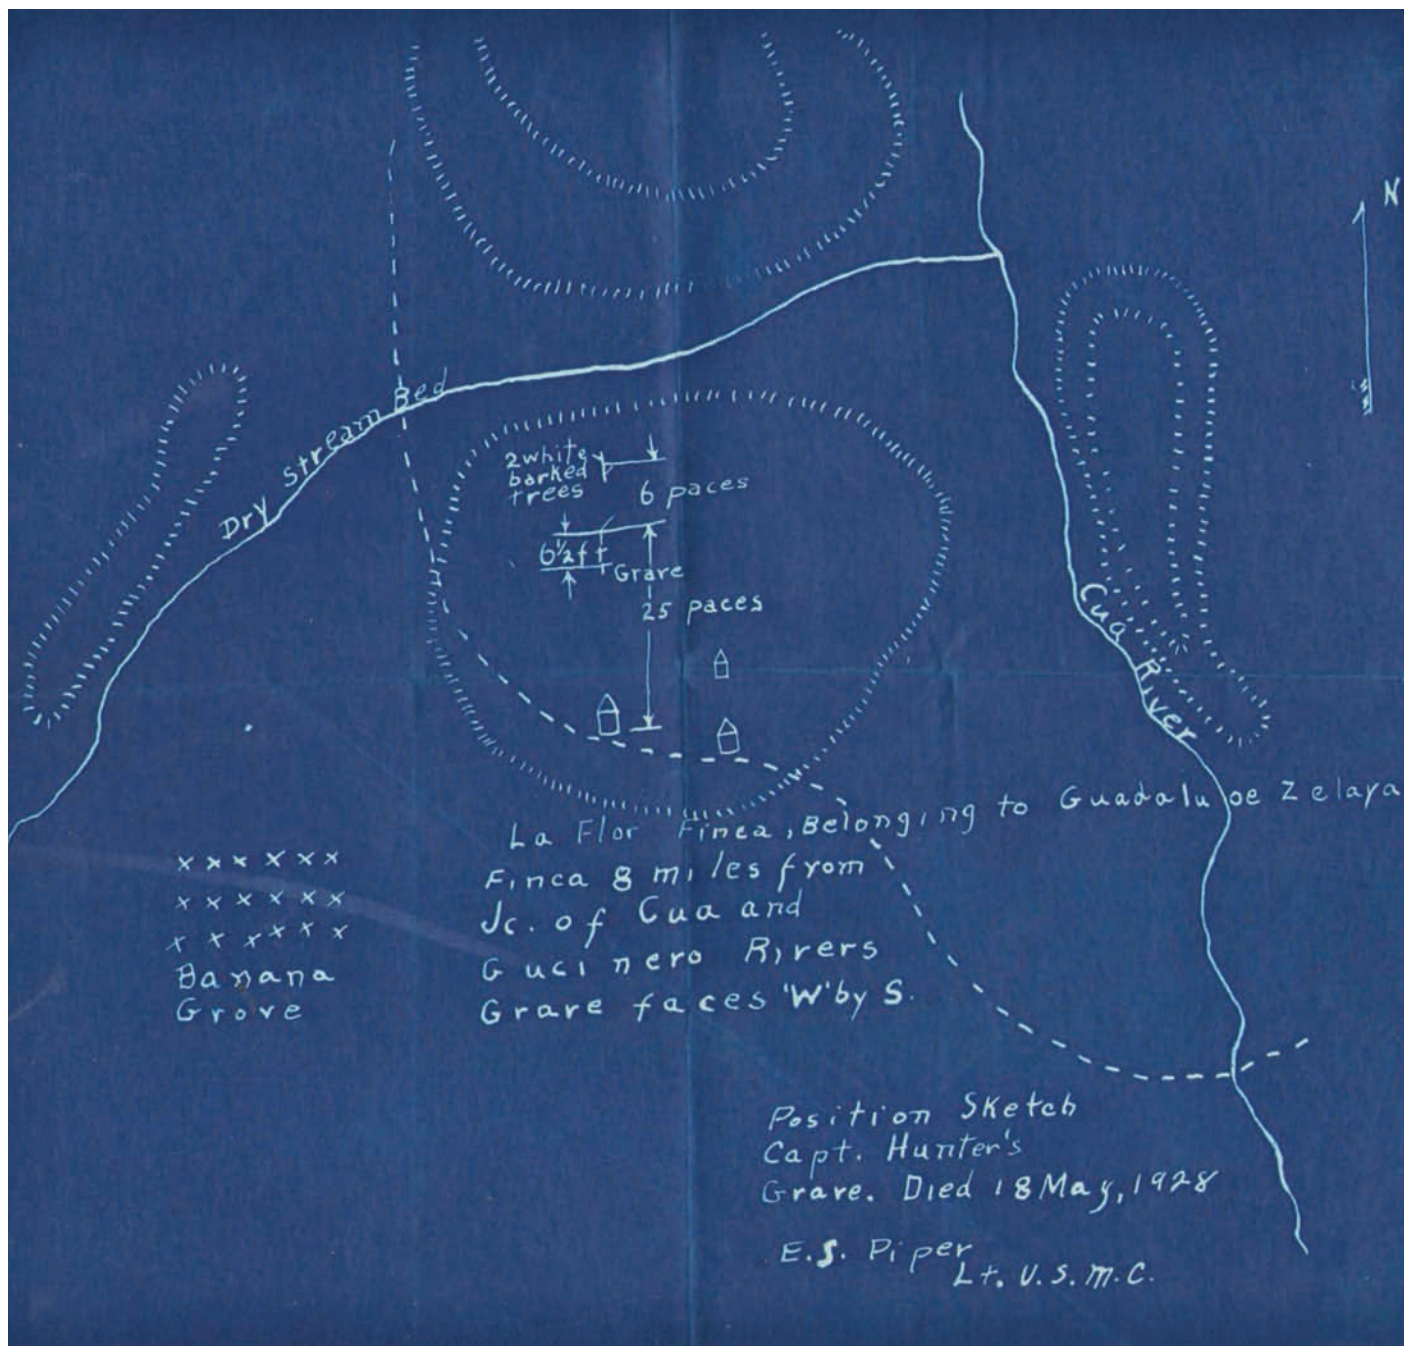 N
Dry Stream Bed
2 white
barked
trees
6 paces
6½ft
Grave
25 paces
Cua River
La Flor Finca, Belonging to Guadalupe Zelaya
Finca 8 miles from
Jc. of Cua and
Gucinero Rivers
Grave faces 'W' by S.
x x x x x x
x x x x x x
x x x x x x
Banana
Grove
Position Sketch
Capt. Hunter's
Grave. Died 18 May, 1928
E.S. Piper
Lt. U.S.M.C.